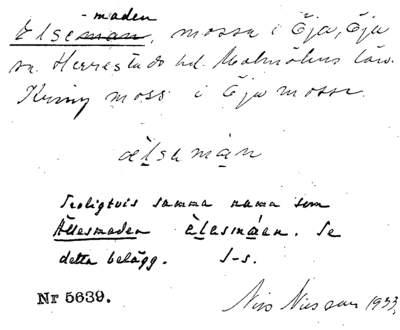 -maden
Elseman, mosse i Öja, Öja
sn. Herrestads hd. Malmöhus län.
Kring moss i Öja mosse.
èlsəmàn
Troligtvis samma namn som
Ällesmaden èləsmáen. Se
detta belägg. S-s.
Nr 5639.
Nils Nilsson 1933.